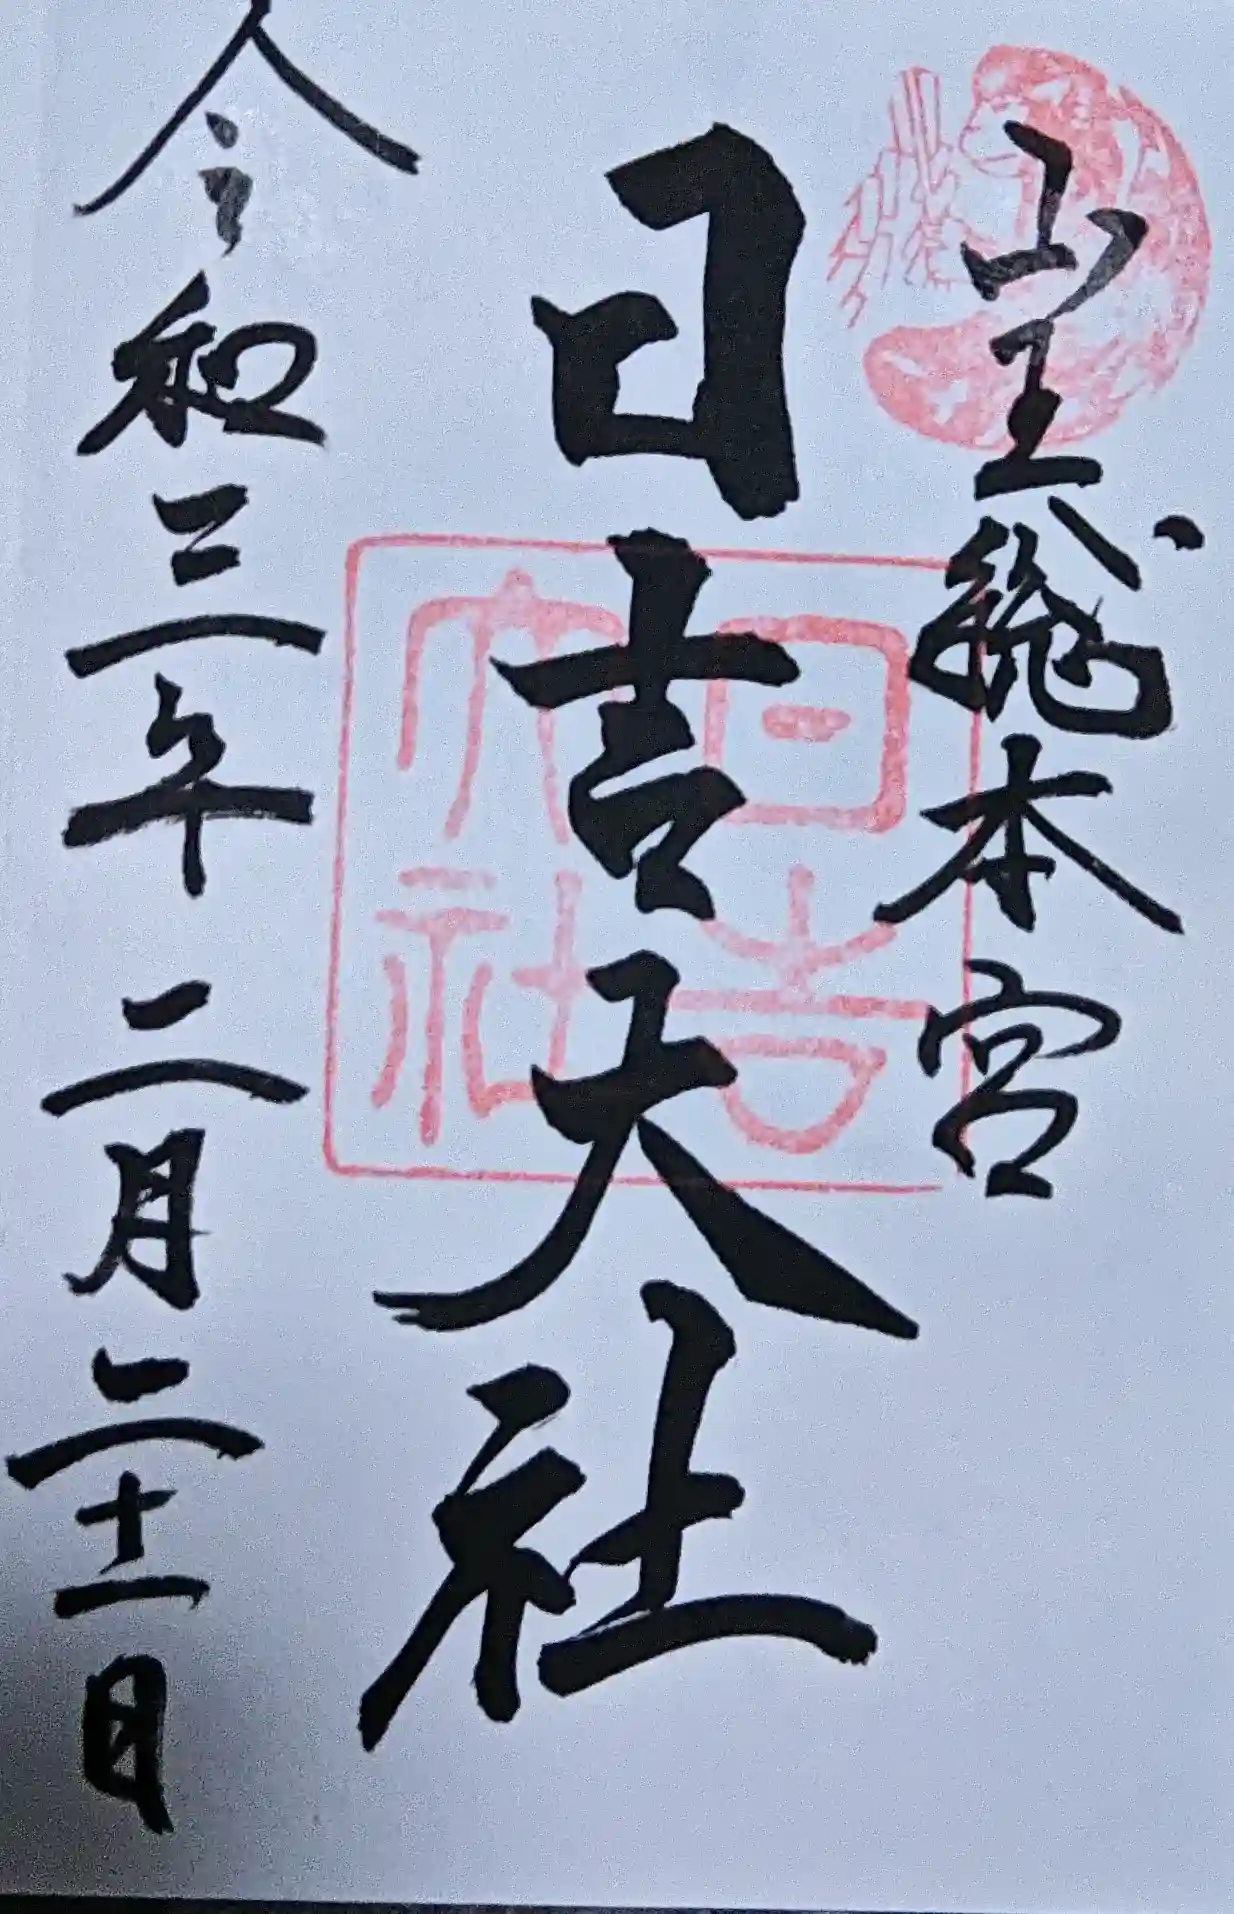 山王総本宮
日吉大社
令和三年二月二十一日
日吉
大社